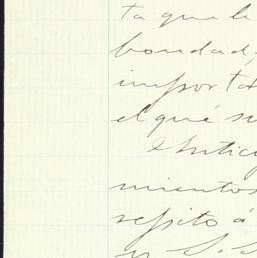 ta que le
bondad,
importa
el qué su
Antici
mientos
repito á